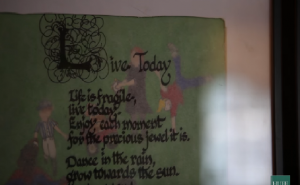 Live Today
Life is fragile,
live today.
Enjoy each moment
for the precious jewel it is.
Dance in the rain,
grow towards the sun.